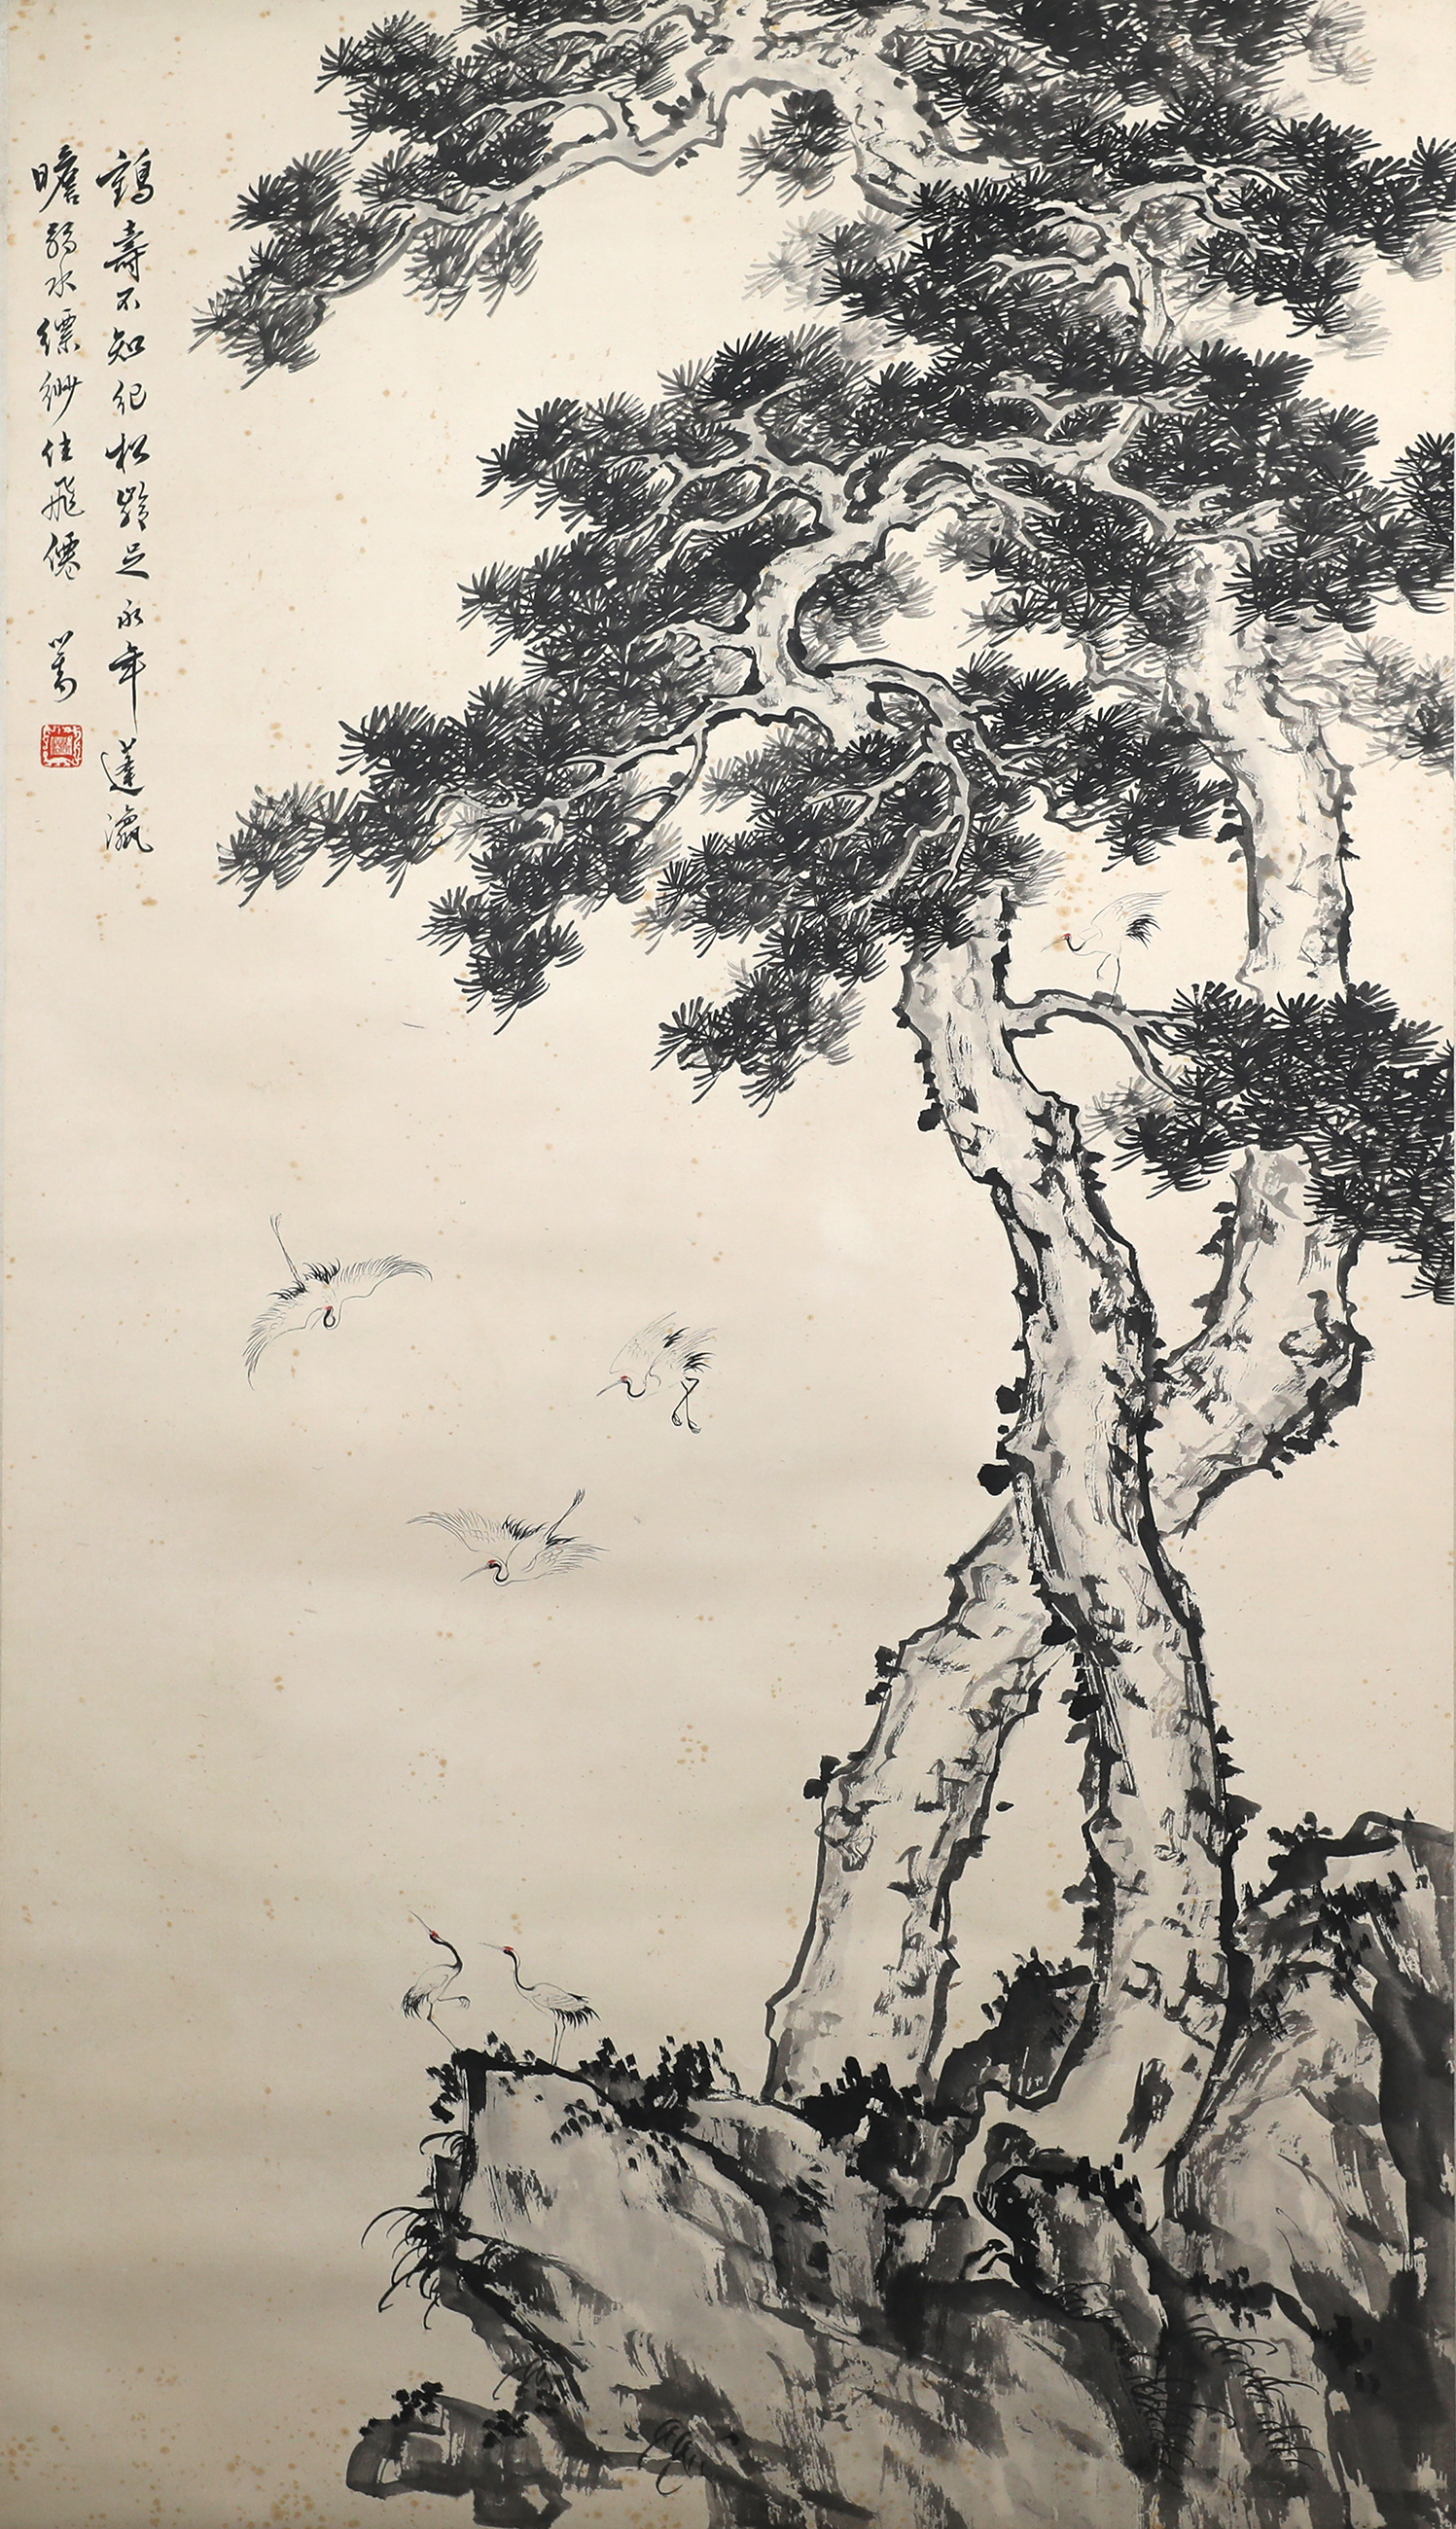 鶴壽不知紀松齡足永年蓬瀛
瞻弱水縹緲住飛僊 心畬